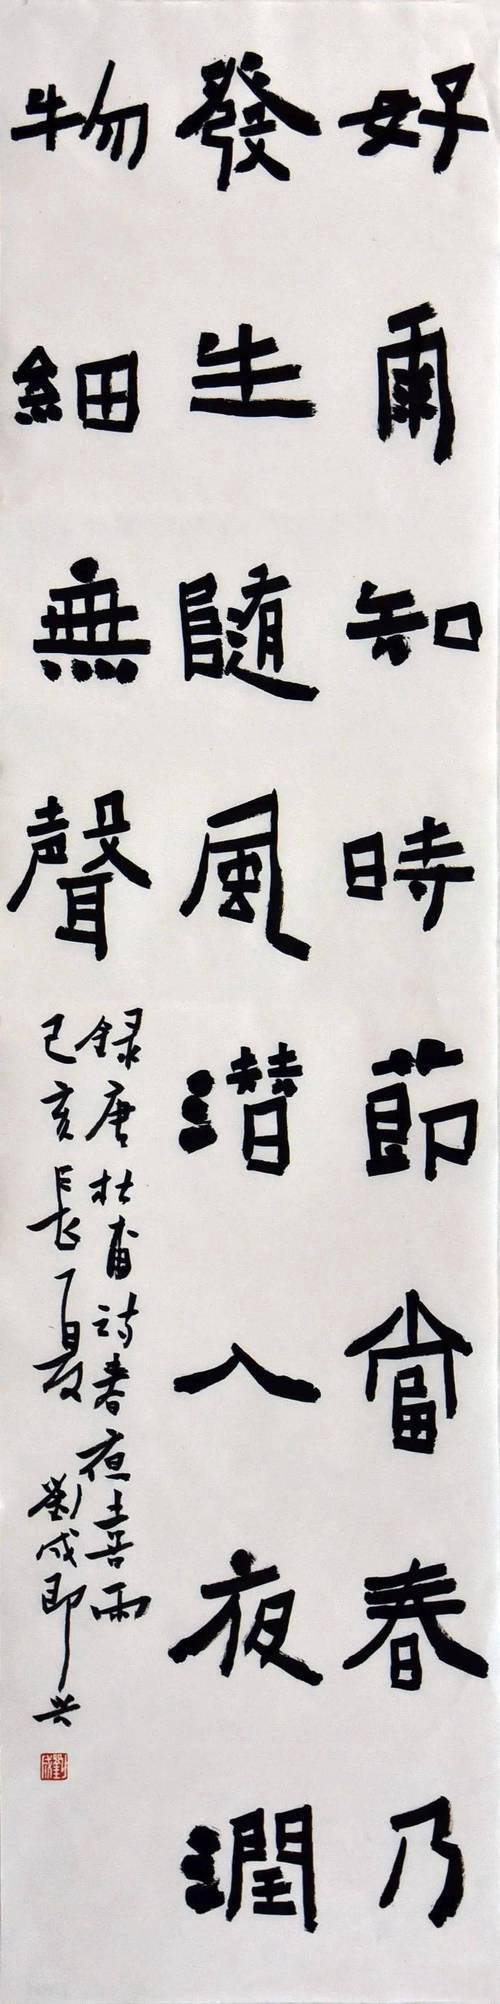 好雨知時節當春乃
發生隨風潛入夜潤
物細無聲
録唐杜甫詩春夜喜雨
己亥長夏劉成即兴
劉成